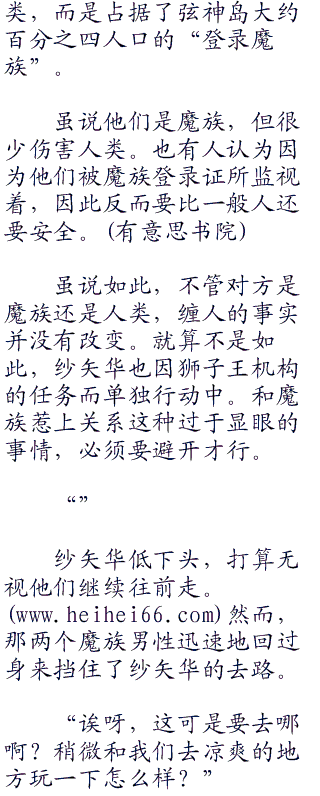 类，而是占据了弦神岛大约
百分之四人口的“登录魔
族”。
虽说他们是魔族，但很
少伤害人类。也有人认为因
为他们被魔族登录证所监视
着，因此反而要比一般人还
要安全。(有意思书院)
虽说如此，不管对方是
魔族还是人类，缠人的事实
并没有改变。就算不是如
此，纱矢华也因狮子王机构
的任务而单独行动中。和魔
族惹上关系这种过于显眼的
事情，必须要避开才行。
“”
纱矢华低下头，打算无
视他们继续往前走。
(www.heihei66.com)然而，
那两个魔族男性迅速地回过
身来挡住了纱矢华的去路。
“诶呀，这可是要去哪
啊？稍微和我们去凉爽的地
方玩一下怎么样？”